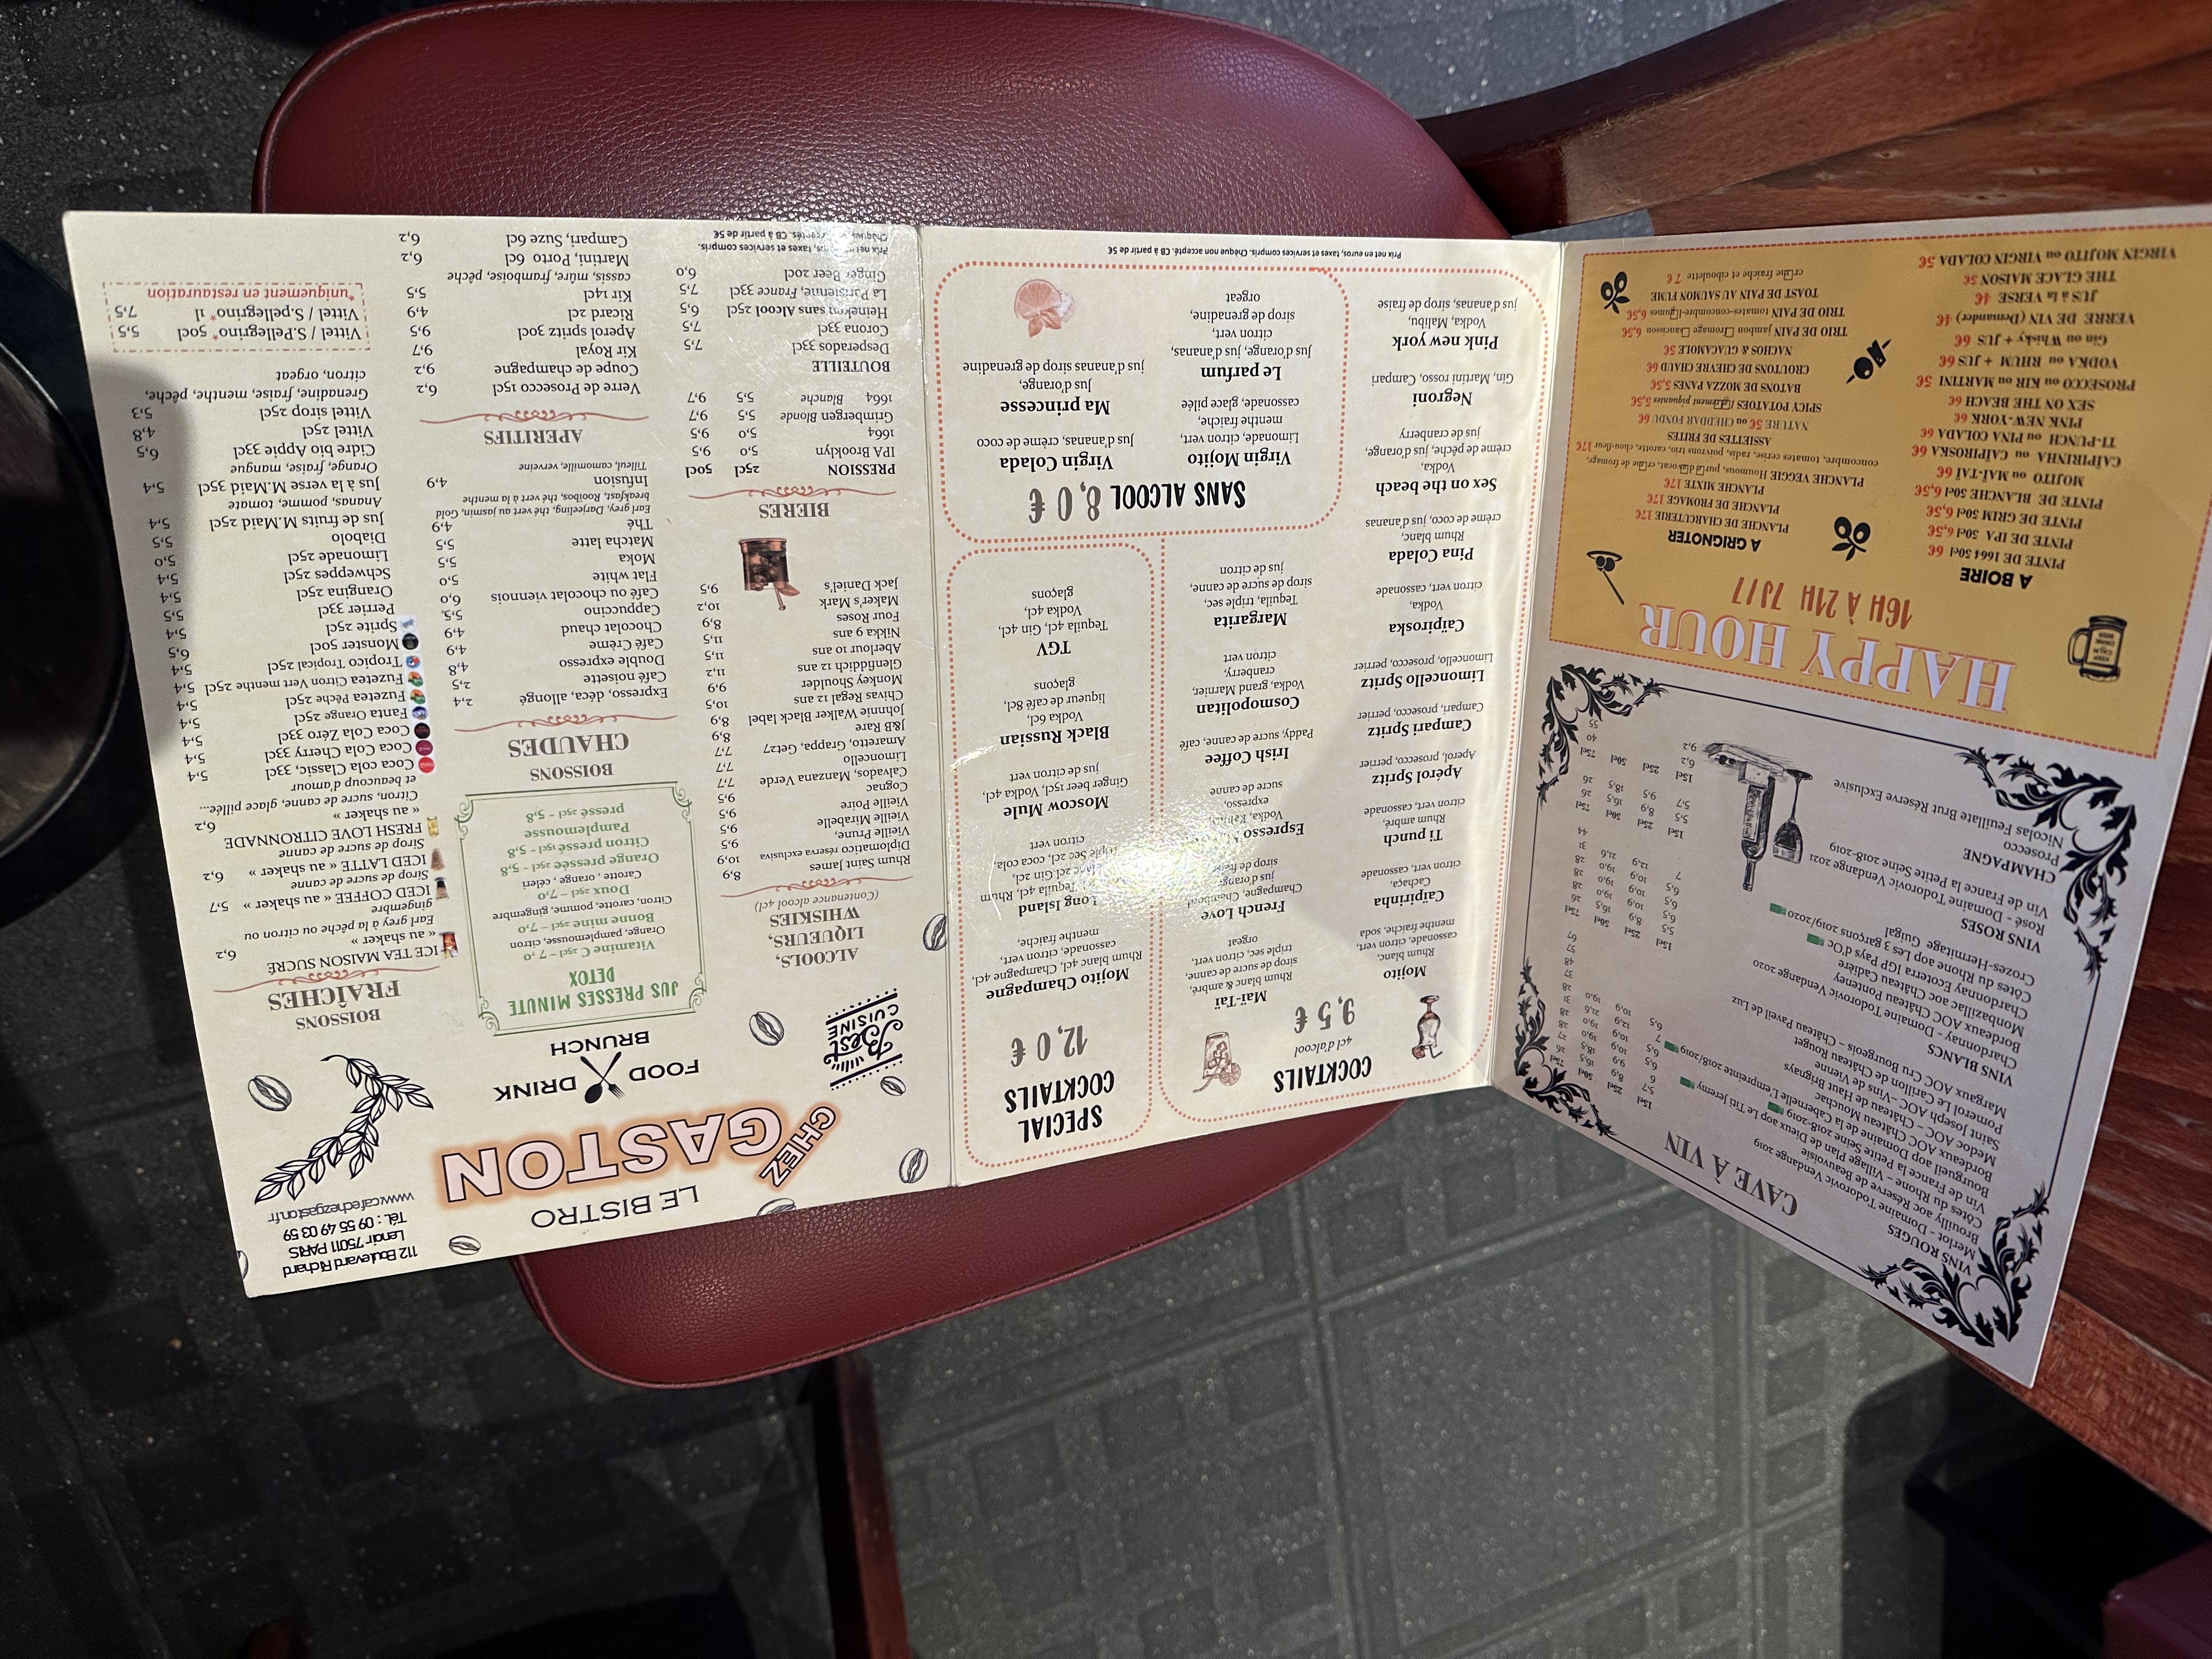 LE BISTRO
CHEZ
GASTON
FOOD DRINK
BRUNCH
Best
CUISINE
112 Boulevard Richard
Lenoir 75011 PARIS
Tél. : 09 55 49 03 59
www.cafechezgaston.fr
ALCOOLS,
LIQUEURS,
WHISKIES
(Contenance alcool 4cl)
Rhum Saint James 8,9
Diplomatico réserva exclusiva 10,9
Vieille Prune, 9,5
Vieille Mirabelle 9,5
Vieille Poire 9,5
Cognac 9,5
Calvados, Manzana Verde 7,7
Limoncello 7,7
Amaretto, Grappa, Get27 7,7
J&B Rare 8,9
Johnnie Walker Black label 8,9
Chivas Regal 12 ans 10,5
Monkey Shoulder 9,9
Glenfiddich 12 ans 11,2
Aberlour 10 ans 11,5
Nikka 9 ans 11,5
Four Roses 8,9
Maker's Mark 10,2
Jack Daniel's 9,5
BIERES
PRESSION 25cl 50cl
IPA Brooklyn 5,0 9,5
1664 5,0 9,5
Grimbergen Blonde 5,5 9,7
1664 Blanche 5,5 9,7
BOUTEILLE
Desperados 33cl 7,5
Corona 33cl 7,5
Heineken sans Alcool 25cl 6,5
La Parisienne, France 33cl 7,5
Ginger Beer 20cl 6,0
taxes et services compris.
CB à partir de 5€
JUS PRESSES MINUTE
DETOX
Vitamine C 25cl – 7,0
Orange, pamplemousse, citron
Bonne mine – 7,0
Citron, carotte, pomme, gingembre
Doux 25cl – 7,0
Carotte, orange, céleri
Orange pressée 25cl – 5,8
Citron pressé 15cl – 5,8
Pamplemousse
pressé 25cl – 5,8
BOISSONS
CHAUDES
Expresso, déca, allongé 2,4
Café noisette 2,5
Double expresso 4,8
Café Crème 4,9
Chocolat chaud 4,9
Cappuccino 5,5
Café ou chocolat viennois 6,0
Flat white 5,0
Moka 5,5
Matcha latte 5,5
Thé 4,9
Earl grey, Darjeeling, thé vert au jasmin, Gold
breakfast, Rooibos, thé vert à la menthe
Infusion 4,9
Tilleul, camomille, verveine
APERITIFS
Verre de Prosecco 15cl 6,2
Coupe de champagne 9,2
Kir Royal 9,7
Aperol spritz 30cl 9,5
Ricard 2cl 4,9
Kir 14cl 5,5
cassis, mûre, framboise, pêche
Martini, Porto 6cl 6,2
Campari, Suze 6cl 6,2
BOISSONS
FRAÎCHES
ICE TEA MAISON SUCRÉ
« au shaker » 6,2
Earl grey à la pêche ou citron ou
gingembre
ICED COFFEE « au shaker » 5,7
Sirop de sucre de canne
ICED LATTE « au shaker » 6,2
Sirop de sucre de canne
FRESH LOVE CITRONNADE
« au shaker » 6,2
Citron, sucre de canne, glace pillée...
et beaucoup d'amour
Coca cola Classic, 33cl 5,4
Coca Cola Cherry 33cl 5,4
Coca Cola Zéro 33cl 5,4
Fanta Orange 25cl 5,4
Fuzetea Pêche 25cl 5,4
Fuzetea Citron Vert menthe 25cl 5,4
Tropico Tropical 25cl 5,4
Monster 50cl 6,5
Sprite 25cl 5,4
Perrier 33cl 5,5
Orangina 25cl 5,4
Schweppes 25cl 5,4
Limonade 25cl 5,0
Diabolo 5,5
Jus de fruits M.Maid 25cl 5,4
Ananas, pomme, tomate
Jus à la verse M.Maid 35cl 5,4
Orange, fraise, mangue
Cidre bio Appie 33cl 6,5
Vittel 25cl 4,8
Vittel sirop 25cl 5,3
Grenadine, fraise, menthe, pêche,
citron, orgeat
Vittel / S.Pellegrino* 50cl 5,5
Vittel / S.pellegrino* 1l 7,5
*uniquement en restauration
COCKTAILS
4cl d'alcool
9,5 €
Mojito
Rhum blanc,
cassonade, citron vert,
menthe fraiche, soda
Caïpirinha
Cachaça,
citron vert, cassonade
Ti punch
Rhum ambré,
citron vert, cassonade
Apérol Spritz
Aperol, prosecco, perrier
Campari Spritz
Campari, prosecco, perrier
Limoncello Spritz
Limoncello, prosecco, perrier
Caïpiroska
Vodka,
citron vert, cassonade
Pina Colada
Rhum blanc,
crème de coco, jus d'ananas
Sex on the beach
Vodka,
crème de pêche, jus d'orange,
jus de cranberry
Negroni
Gin, Martini rosso, Campari
Pink new york
Vodka, Malibu,
jus d'ananas, sirop de fraise
Maï-Taï
Rhum blanc & ambré,
sirop de sucre de canne,
triple sec, citron vert,
orgeat
French Love
Champagne, Chambord,
jus d'orange,
sirop de fraise
Espresso
Vodka, Kahlua,
expresso,
sucre de canne
Irish Coffee
Paddy, sucre de canne, café
Cosmopolitan
Vodka, grand Marnier,
cranberry,
citron vert
Margarita
Tequila, triple sec,
sirop de sucre de canne,
jus de citron
SPECIAL
COCKTAILS
12,0 €
Mojito Champagne
Rhum blanc 4cl, Champagne 4cl,
cassonade, citron vert,
menthe fraiche
Long Island
Tequila 4cl, Rhum
blanc 2cl Gin 2cl,
Triple Sec 2cl, coca cola,
citron vert
Moscow Mule
Ginger beer 15cl, Vodka 4cl,
jus de citron vert
Black Russian
Vodka 6cl,
liqueur de café 8cl
glaçons
TGV
Tequila 4cl, Gin 4cl,
Vodka 4cl,
glaçons
SANS ALCOOL 8,0 €
Virgin Mojito
Limonade, citron vert,
menthe fraiche,
cassonade, glace pilée
Le parfum
Jus d'orange, jus d'ananas,
citron vert,
sirop de grenadine,
orgeat
Virgin Colada
Jus d'ananas, crème de coco
Ma princesse
Jus d'orange,
jus d'ananas sirop de grenadine
Prix net en euros, taxes et services compris. Chèque non accepté. CB à partir de 5€
CAVE À VIN
VINS ROUGES 15cl 25cl 50cl 75cl
Merlot - Domaine Todorovic Vendange 2019
Brouilly aoc Réserve de Beauvoisie
Côtes du Rhone - Village Plan de Dieux aop Le Titi Jeremy
Vin de France la Petite Seine 2018-2019
Bourgueil aop Domaine de la Cabernelle L'empreinte 2018/2019
Bordeaux AOC Château Mouchac
Medoc AOC – Château Haut Brignays
Saint Joseph AOC – Vins de Vienne
Pomerol Le Carillon de Château Rouget
Margaux AOC Cru Bourgeois – Château Paveil de Luz
VINS BLANCS 15cl 25cl 50cl 75cl
Chardonnay – Domaine Todorovic Vendange 2020
Bordeaux AOC Château Ponteney
Monbazillac aoc Château Cadière
Chardonnay Ecoterra IGP Pays d'Oc
Côtes du Rhone aop Les 3 garçons 2019/2020
Crozes-Hermitage Guigal
VINS ROSES 15cl 25cl 50cl 75cl
Rosé – Domaine Todorovic Vendange 2021
Vin de France la Petite Seine 2018-2019
CHAMPAGNE 15cl 25cl 50cl 75cl
Prosecco 6,2 40
Nicolas Feuillate Brut Réserve Exclusive 9,2 55
HAPPY HOUR
16H À 21H 7J/7
A BOIRE
PINTE DE 1664 50cl 6€
PINTE DE IPA 50cl 6,5€
PINTE DE GRIM 50cl 6,5€
PINTE DE BLANCHE 50cl 6,5€
MOJITO ou MAI-TAI 6€
CAÏPIRINHA ou CAÏPIROSKA 6€
TI-PUNCH ou PINA COLADA 6€
PINK NEW-YORK 6€
SEX ON THE BEACH 6€
PROSECCO ou KIR ou MARTINI 5€
VODKA ou RHUM + JUS 6€
Gin ou Whisky + JUS 6€
VERRE DE VIN (Demander) 4€
JUS à la VERSE 4€
THE GLACE MAISON 5€
VIRGIN MOJITO ou VIRGIN COLADA 5€
A GRIGNOTER
PLANCHE DE CHARCUTERIE 17€
PLANCHE DE FROMAGE 17€
PLANCHE MIXTE 17€
PLANCHE VEGGIE Houmous, purée d'avocat, crème de fromage,
concombre, tomates cerise, radis, poivrons trio, carotte, chou-fleur 17€
ASSIETTES DE FRITES
NATURE 5€ ou CHEDDAR FONDU 6€
SPICY POTATOES piquantes 5,5€
BATONS DE MOZZA PANES 5,5€
CROUTONS DE CHEVRE CHAUD 6€
NACHOS & GUACAMOLE 5€
TRIO DE PAIN jambon fromage saucisson 6,5€
TRIO DE PAIN tomates-concombre-légumes 6,5€
TOAST DE PAIN AU SAUMON FUME
crème fraiche et ciboulette 7€